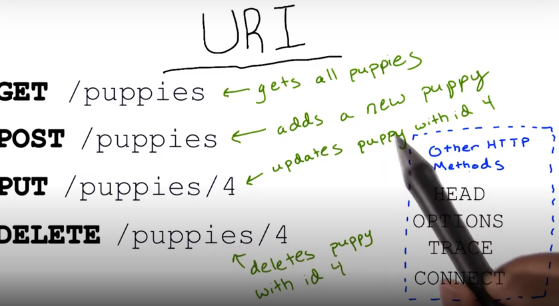 URI
GET /puppies ← gets all puppies
POST /puppies ← adds a new puppy
PUT /puppies/4 ← updates puppy with id 4
DELETE /puppies/4
deletes puppy
with id 4
Other HTTP
Methods
HEAD
OPTIONS
TRACE
CONNECT